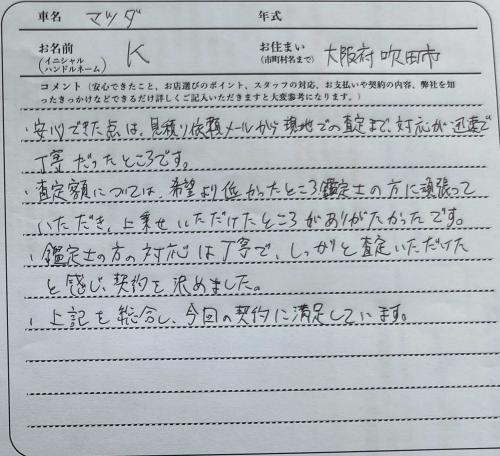 車名 マツダ 年式
お名前 (イニシャル ハンドルネーム) K お住まい (市町村名まで) 大阪府吹田市
コメント（安心できたこと、お店選びのポイント、スタッフの対応、お支払いや契約の内容、弊社を知
ったきっかけなどできるだけ詳しくご記入いただきますと大変参考になります。）
・安心できた点は、見積り依頼メールから現地での査定まで、対応が迅速で
丁寧だったところです。
・査定額については、希望より低かったところ鑑定士の方に頑張って
いただき、上乗せいただけたところがありがたかったです。
・鑑定士の方の対応は丁寧で、しっかと査定いただけた
と感じ、契約を決めました。
・上記を総合し、今回の契約に満足しています。